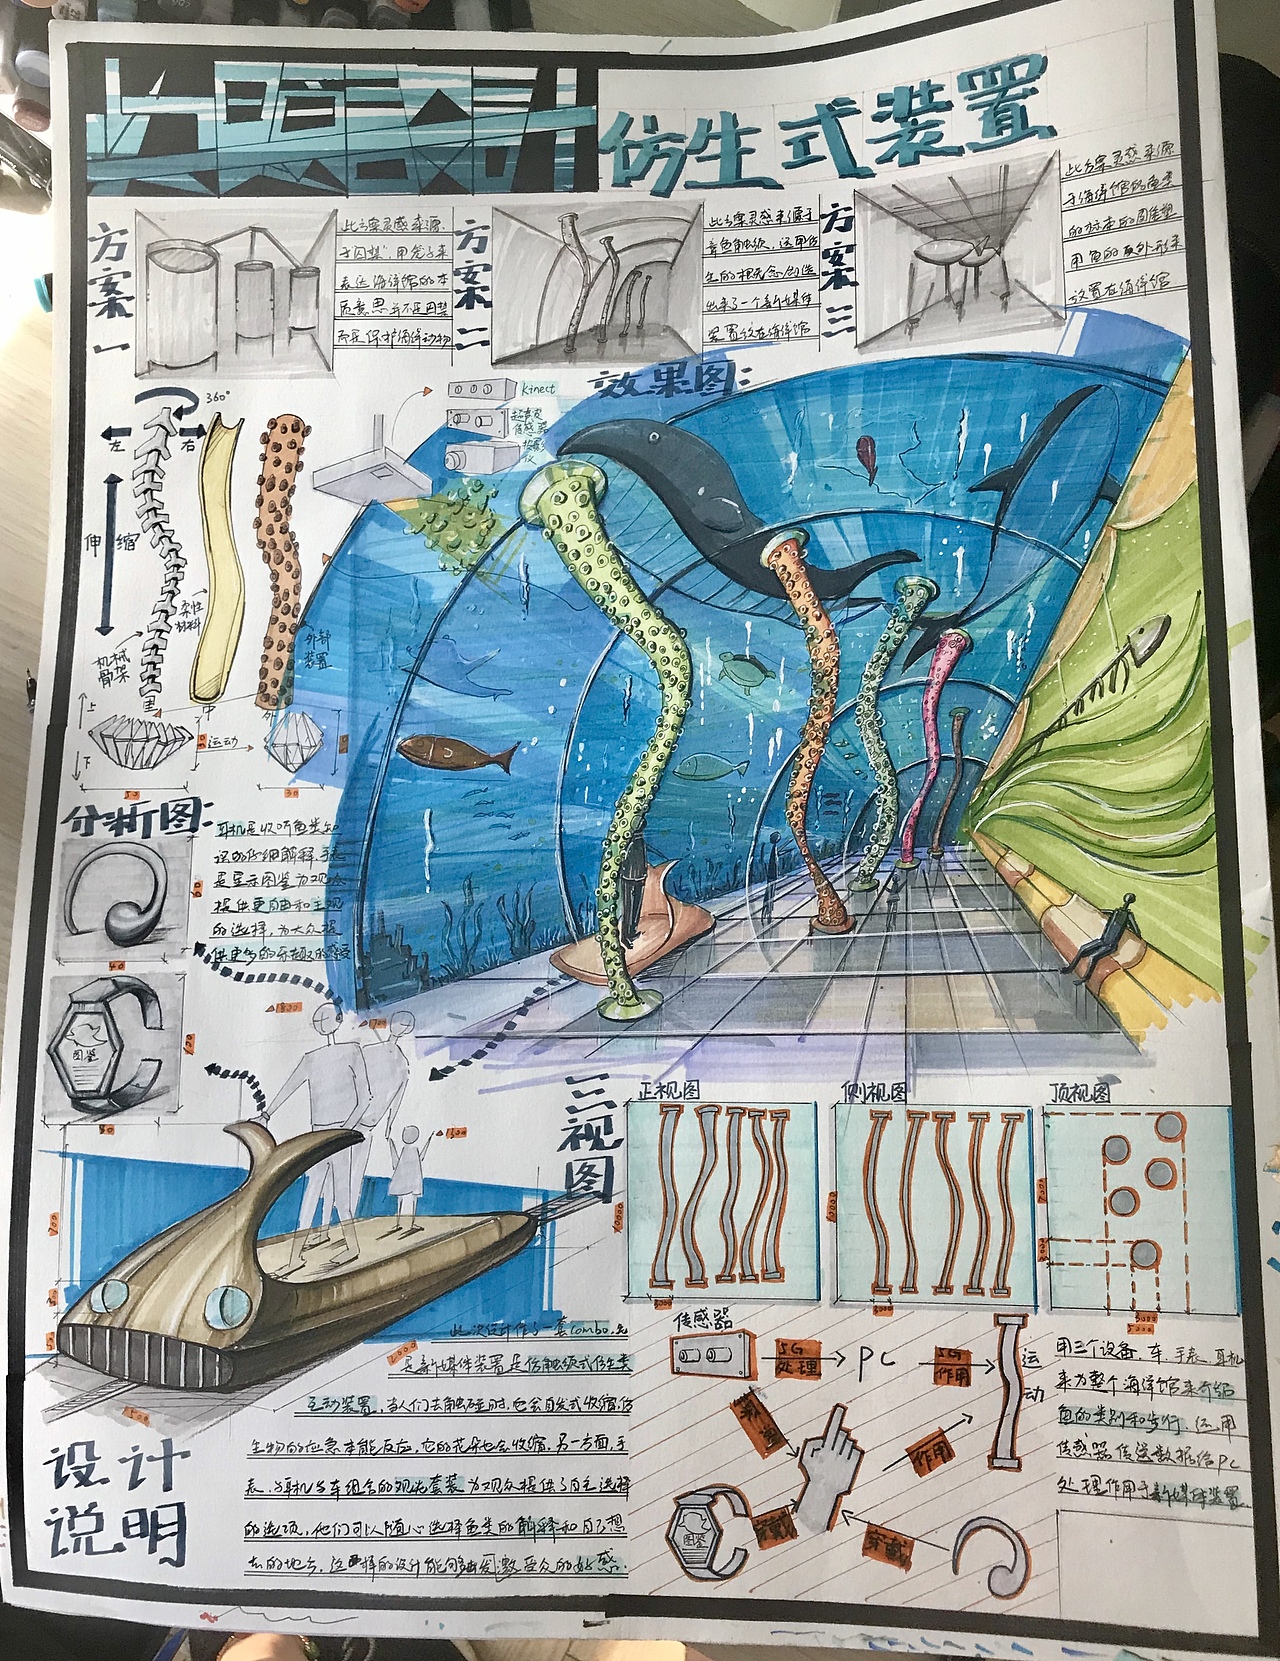 仿生式装置
方案一
此方案灵感来源
方案二
此方案灵感来源于
章鱼触须，运用仿
生的相关概念创造
出来了一个新媒体
装置放在海洋馆
方案三
此方案灵感来源
于海洋馆的鱼类
放置在海洋馆
表达海洋馆的本
质意思并不是囚禁
而是保护海洋动物
效果图:
360°
左
右
伸缩
柔性
材料
机械
骨架
外部
装置
上
下
里
中
外
运动
50
30
Kinect
超声波
传感器
投影
仪
分析图:
耳机是收听鱼类知
识的仔细解释，手表
是显示图鉴为观众
提供更自由和主观
的选择，为大众提
供更多的乐趣和感受
40
图鉴
三视图
正视图
侧视图
顶视图
此次设计作了一套combo,先
是新媒体装置是仿触须式仿生类
互动装置，当人们去触碰时，它会自发式收缩，仿
生物的应急本能反应，它的花朵也会收缩，另一方面，手
表、耳机与车组合的观光套装为观众提供了自主选择
的选项，他们可以随心选择鱼类的解释和自己想
去的地方，这样的设计能够激发受众的好感.
设计
说明
传感器
5G
处理
PC
5G
作用
运动
作用
穿戴
图鉴
穿戴
用三个设备，车、手表、耳机
来为整个海洋馆来介绍
鱼的类别和步行，运用
传感器传送数据给PC
处理作用于新媒体装置